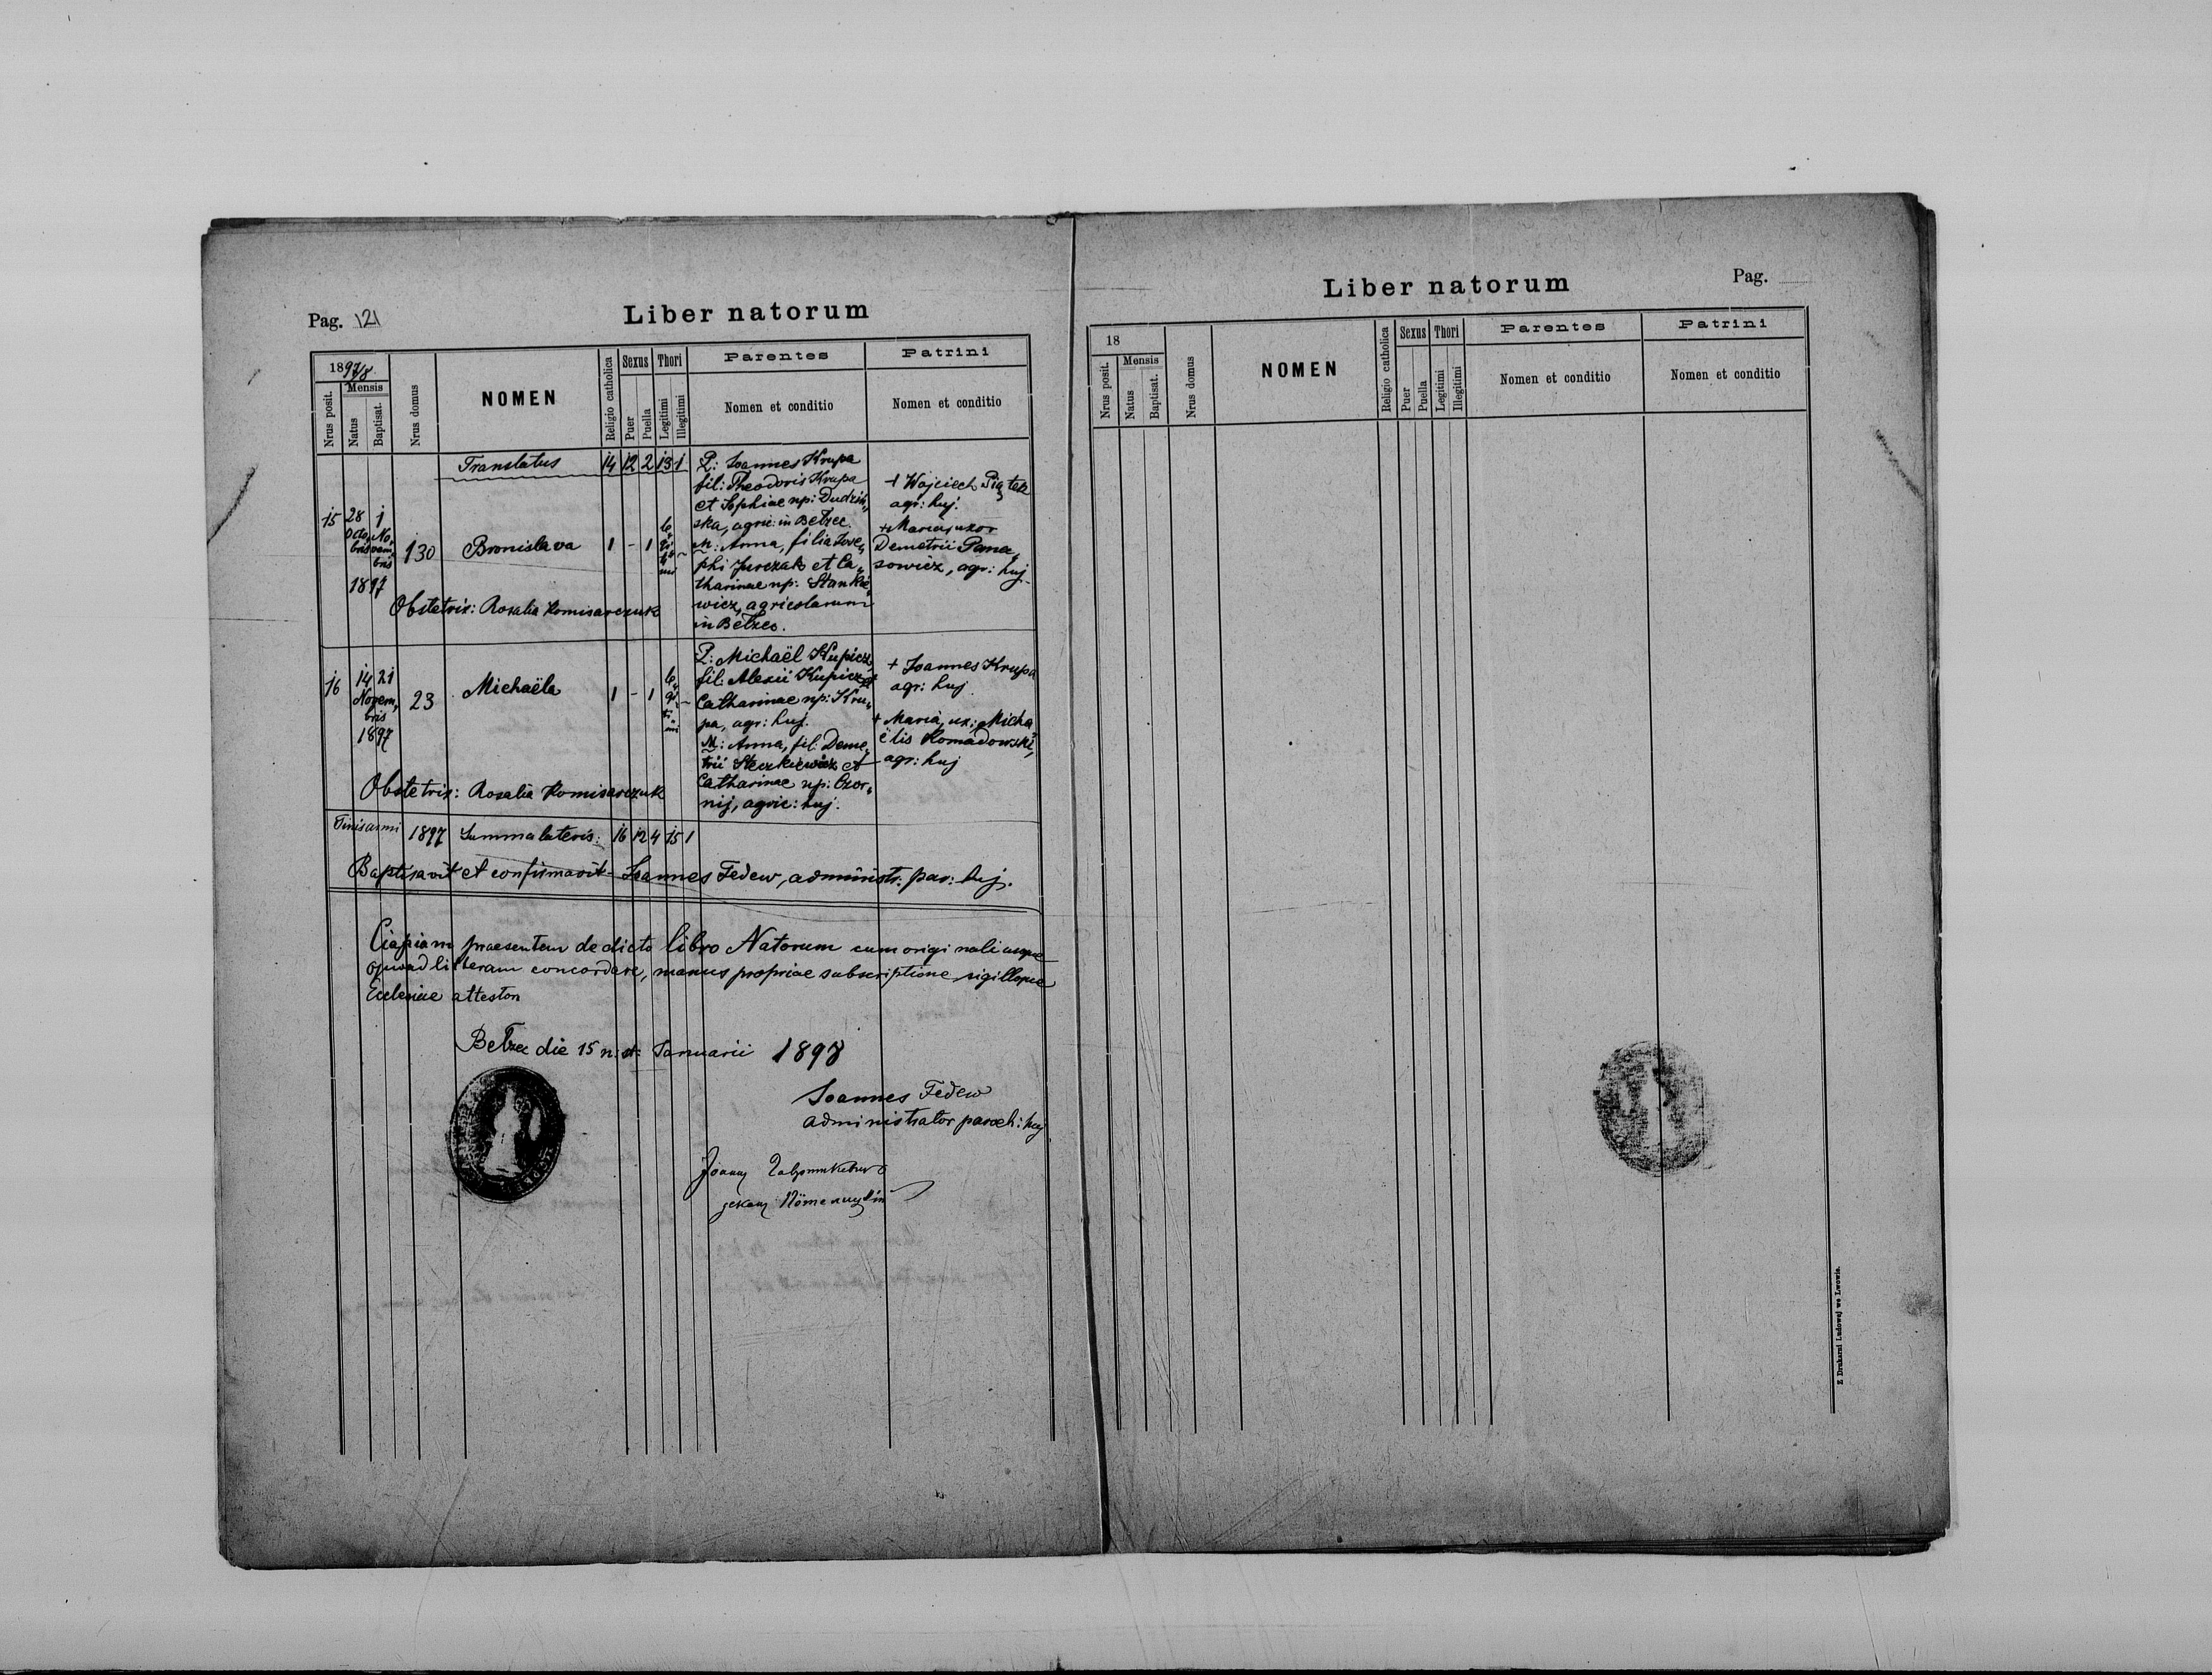 Pag. 121
Liber natorum
1897/8.
Nrus posit.
Mensis
Natus
Baptisat.
Nrus domus
NOMEN
Religio catholica
Sexus
Puer
Puella
Thori
Legitimi
Illegitimi
Parentes
Nomen et conditio
Patrini
Nomen et conditio
Translatus 14 12 2 13 1
15
28 Octo„bris
1 No„vem„bris
1897
130
Bronislava
1 - 1
le„gi„ti„mi
-
P: Joannes Krupa
fil: Theodoris Krupa
et Sophiae np: Dudziń„
ska, agric: in Bełzec.
M: Anna, filia Jose„
phi Jurczak et Ca„
tharinae np: Stankie„
wicz, agricolarum
in Bełzec.
+ Wojciech Piątek
agr: huj.
+ Maria, uxor
Demetrii Pana„
sowicz, agr: huj.
Obstetrix: Rosalia Komisarczuk
16
14 21
Novem„
bris
1897
23
Michaëla
1 - 1
le„gi„ti„mi
-
P: Michaël Kupicz,
fil: Alexii Kupicz et
Catharinae np: Kru„
pa, agr: huj.
M: Anna, fil: Deme„
trii Steczkiewicz et
Catharinae np: Czor„
nij, agric: huj.
+ Joannes Krupa
agr: huj.
+ Maria, ux: Micha
ëlis Komadowski,
agr: huj
Obstetrix: Rosalia Komisarczuk
Finis anni 1897 Summa lateris: 16 12 4 15 1
Baptisavit et confirmavit Joannes Fedew, administr: par: huj.
Ciapiam praesentem de dicto libro Natorum cum originali usque
quoad litteram concordare, manus propriae subscriptione sigilloque
Ecclesiae attestor
Bełzec die 15 n: st: Januarii 1898
Joannes Fedew
administrator paroch: huj
Liber natorum
Pag.
18
Nrus posit.
Mensis
Natus
Baptisat.
Nrus domus
NOMEN
Religio catholica
Sexus
Puer
Puella
Thori
Legitimi
Illegitimi
Parentes
Nomen et conditio
Patrini
Nomen et conditio
Z Drukarni Ludowej we Lwowie.